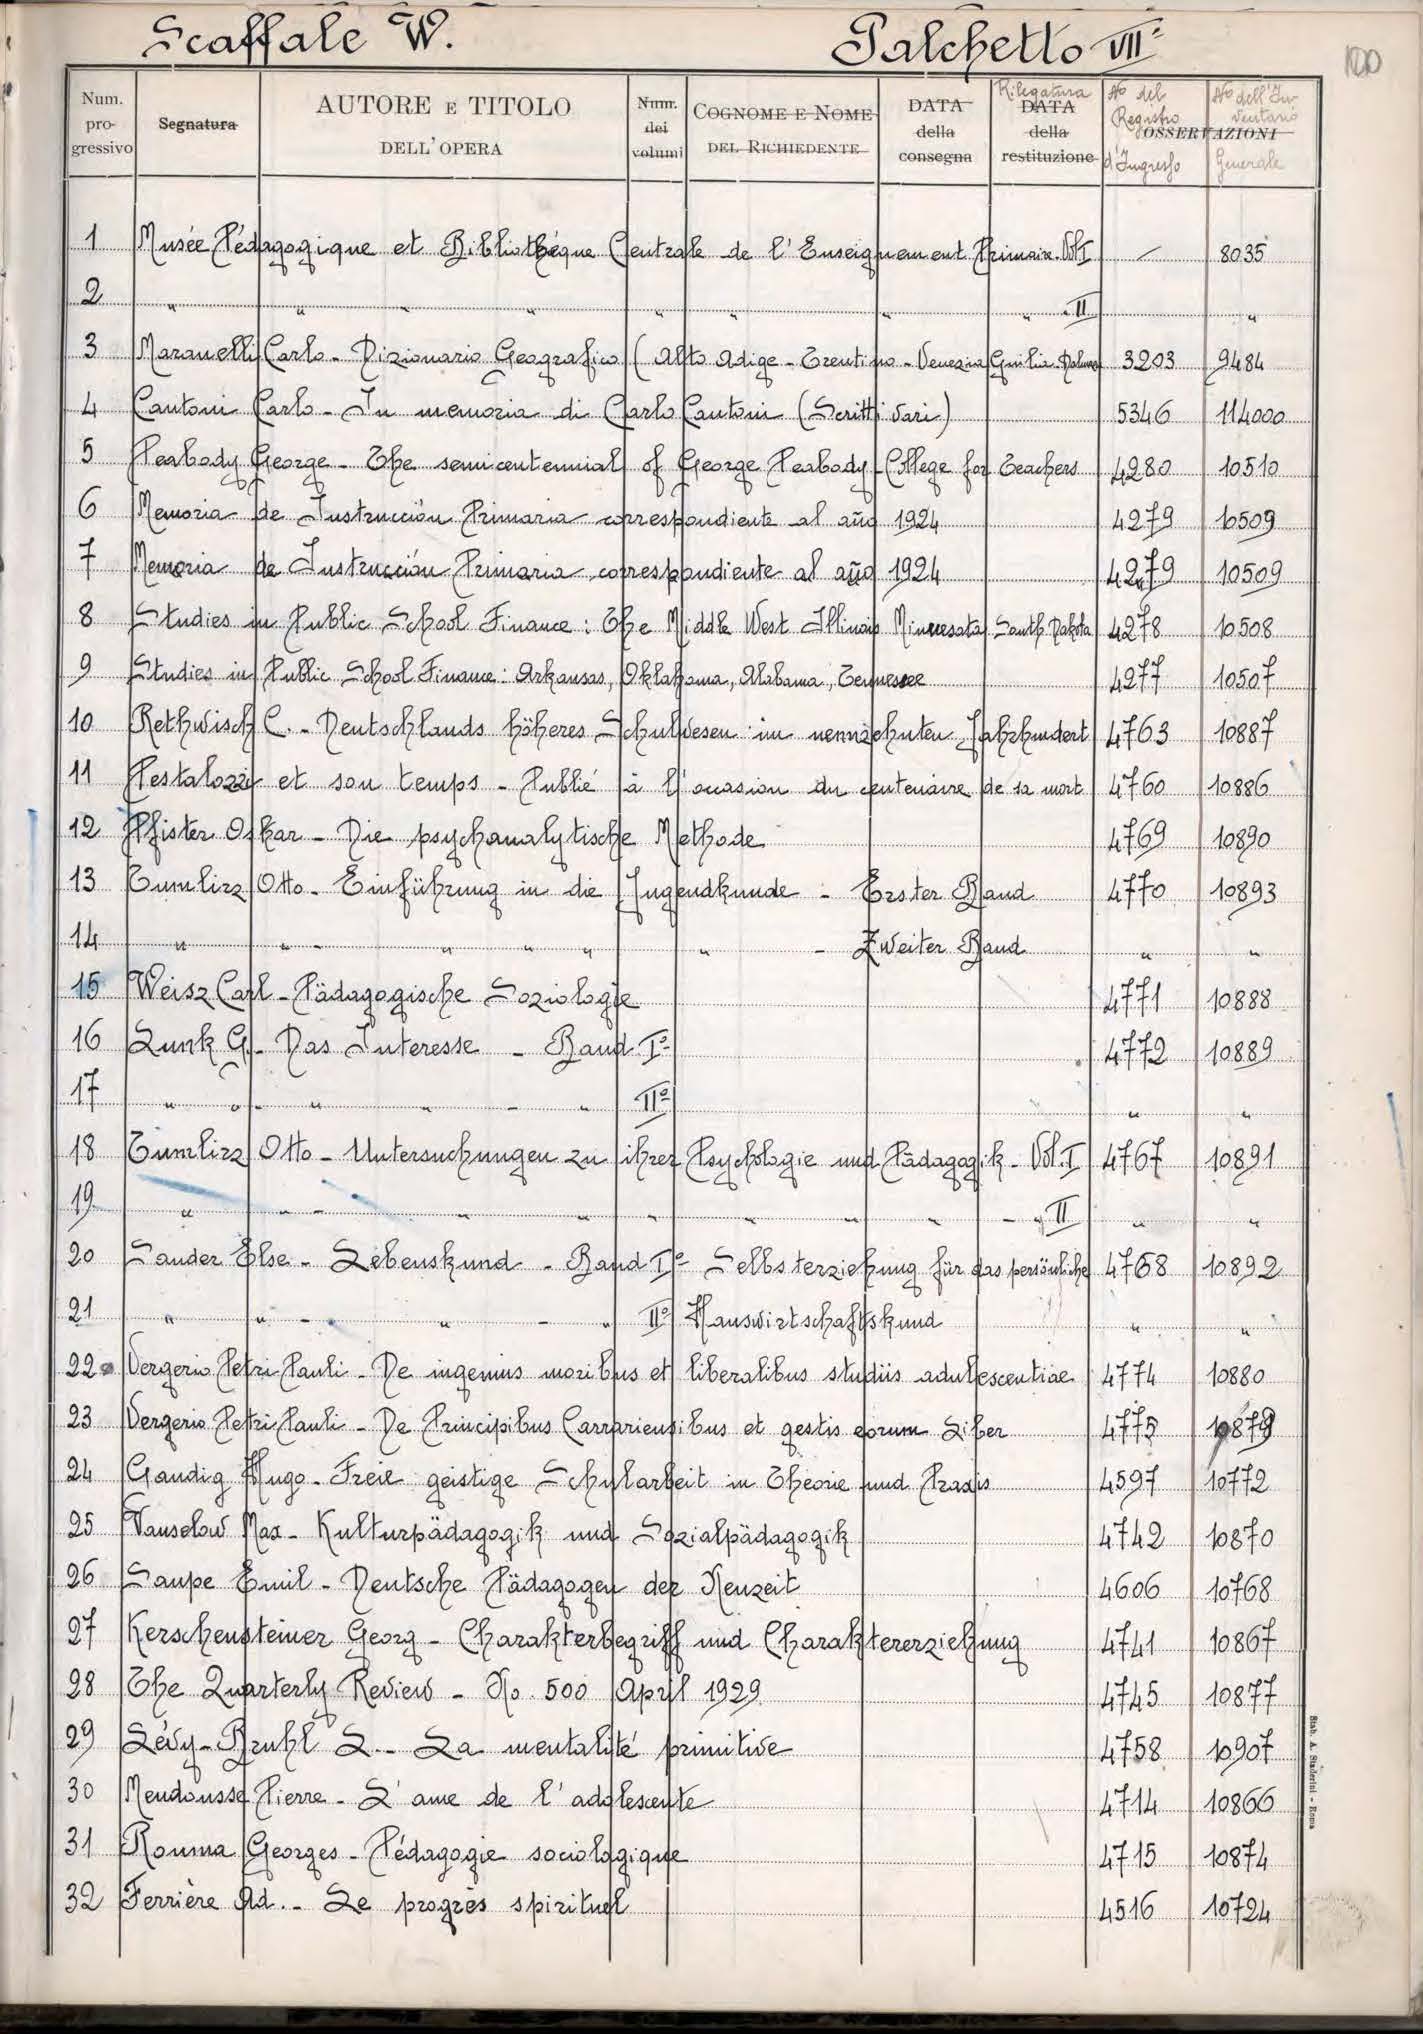 Scaffale W. Palchetto VII°
100
Num. progressivo Segnatura AUTORE E TITOLO DELL'OPERA Num. dei volumi COGNOME E NOME DEL RICHIEDENTE DATA della consegna Rilegatura DATA della restituzione No del Registro d'Ingresso OSSERVAZIONI No dell'Inventario Generale
1 Musée Pédagogique et Bibliothéque Centrale de l'Enseignement Primaire. Vol I — 8035
2 " " " " " " " " " II "
3 Maranelli Carlo - Dizionario Geografico (Alto Adige - Trentino - Venezia Giulia - Dalmaz 3203 9484
4 Cantoni Carlo - In memoria di Carlo Cantoni (Scritti vari) 5346 114000
5 Peabody George - The semicentennial of George Peabody - College for Teachers 4280 10510
6 Memoria de Instrucción Primaria correspondiente al año 1924 4279 10509
7 Memoria de Instrucción Primaria correspondiente al año 1924 4279 10509
8 Studies in Public School Finance : The Middle West Illinois Minnesota South Dakota 4278 10508
9 Studies in Public School Finance : Arkansas, Oklahama, Alabama, Tennessee 4277 10507
10 Rethwisch C. - Deutschlands höheres Schulwesen im nennzehnten Jahrhundert 4763 10887
11 Pestalozzi et son temps - Publié à l'occasion du centenaire de sa mort 4760 10886
12 Pfister Oskar - Die psychanalytische Methode 4769 10890
13 Tumlirz Otto - Einführung in die Jugendkunde - Erster Band 4770 10893
14 " " - " " " " - Zweiter Band " "
15 Weisz Carl - Pädagogische Soziologie 4771 10888
16 Lunk G. - Das Interesse - Band I° 4772 10889
17 " " - " " - " II° " "
18 Tumlirz Otto - Untersuchungen zu ihrer Psychologie und Pädagogik - Vol. I 4767 10891
19 " " - " " " " " " - " II " "
20 Sander Else - Lebenskund - Band I° Selbsterziehung für das persönliche 4768 10892
21 " " - " - " II° Hauswirtschaftskund " "
22 Vergerio Petri Pauli - De ingenius moribus et liberalibus studiis adulescentiae 4774 10880
23 Vergerio Petri Pauli - De Principibus Carrariensibus et gestis eorum Liber 4775 10879
24 Gaudig Hugo - Freie geistige Schularbeit in Theorie und Praxis 4597 10772
25 Vanselow Max - Kulturpädagogik und Sozialpädagogik 4742 10870
26 Saupe Emil - Deutsche Pädagogen der Neuzeit 4606 10768
27 Kerschensteiner Georg - Charakterbegriff und Charaktererziehung 4741 10867
28 The Quarterly Review - No. 500 April 1929 4745 10877
29 Lévy-Bruhl L. - La mentalité primitive 4758 10907
30 Mendousse Pierre - L'ame de l'adolescente 4714 10866
31 Rouma Georges - Pédagogie sociologique 4715 10874
32 Ferrière Ad. - Le progrès spirituel 4516 10724
Stab. A. Staderini - Roma